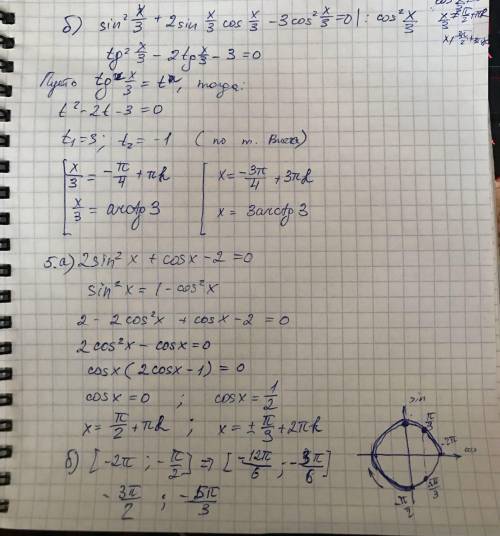 б) sin² x/3 + 2sin x/3 cos x/3 - 3cos² x/3 = 0 | : cos² x/3
x/3 ≠ π/2 + πk
tg² x/3 - 2tg x/3 - 3 = 0
Пусть tg x/3 = t, тогда:
t² - 2t - 3 = 0
t₁ = 3; t₂ = -1 (по т. Виета)
[ x/3 = -π/4 + πk [ x = -3π/4 + 3πk
x/3 = arctg 3 x = 3arctg 3
5.а) 2sin² x + cosx - 2 = 0
sin² x = 1 - cos² x
2 - 2cos² x + cosx - 2 = 0
2cos² x - cosx = 0
cosx (2cosx - 1) = 0
cosx = 0 ; cosx = 1/2
x = π/2 + πk ; x = ± π/3 + 2πk
б) [-2π ; -π/2] => [-12π/6 ; -3π/6]
-3π/2 ; -5π/3
sin
π/3
-2π
cos
5π/3
-π/2